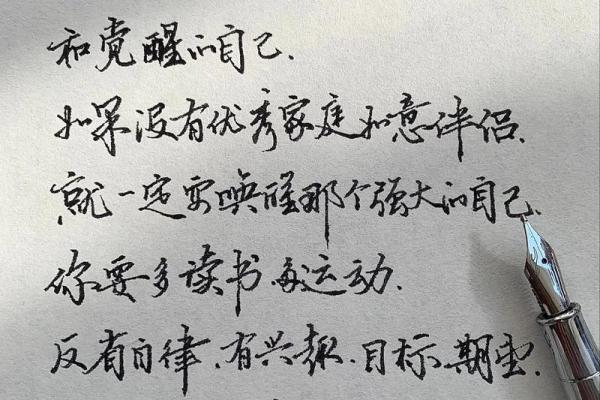 和觉醒的自己.
如果没有优秀家庭如意伴侣.
就一定要唤醒那个强大的自己.
你要多读书 运动.
反有自律、有兴趣、目标、期望.